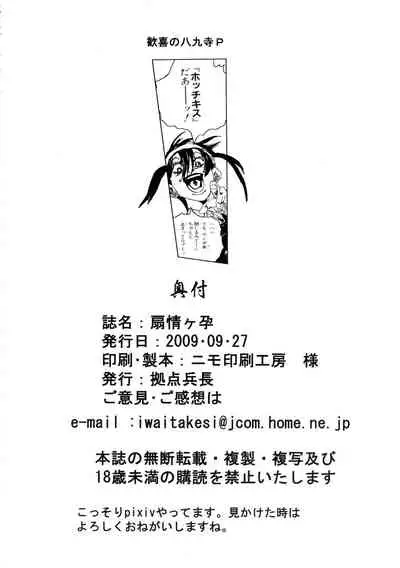 歓喜の八九寺P
『ホッチキス』
だあーーッ!
奥付
誌名:扇情ヶ孕
発行日:2009・09・27
印刷・製本:ニモ印刷工房 様
発行:拠点兵長
ご意見・ご感想は
e-mail :iwaitakesi@jcom.home.ne.jp
本誌の無断転載・複製・複写及び
18歳未満の購読を禁止いたします
こっそりpixivやってます。見かけた時は
よろしくおねがいしますね。